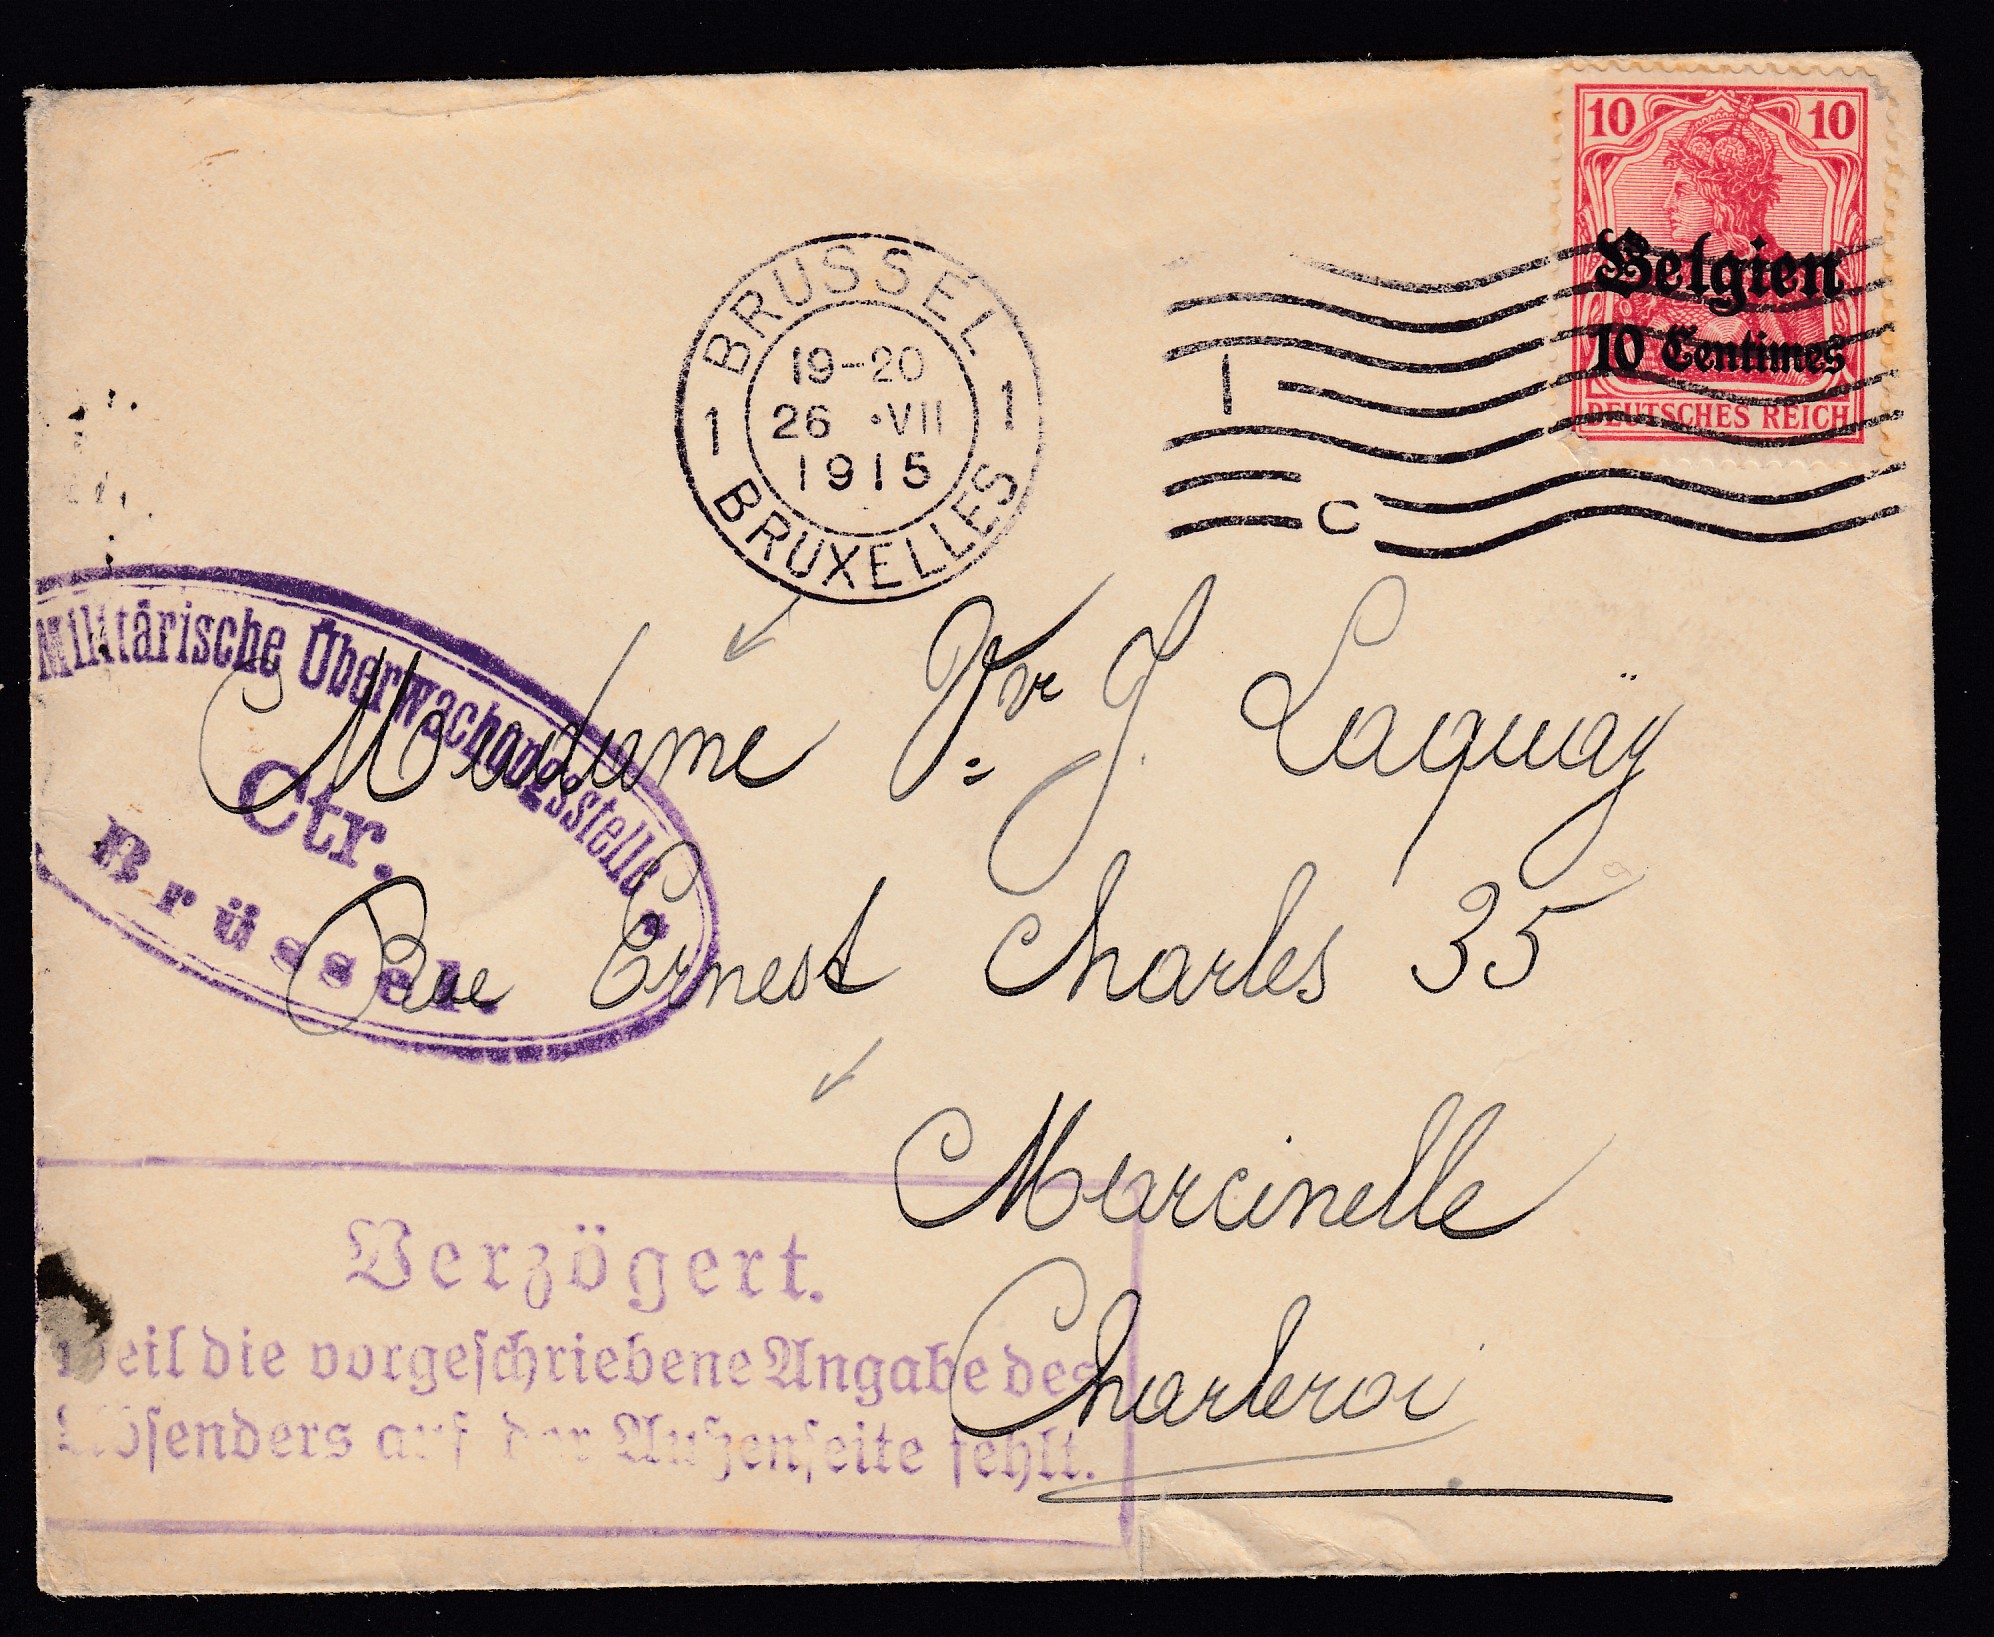 10 10
Belgien
10 Centimes
DEUTSCHES REICH
BRUSSEL
19-20
1 26 ·VII 1
1915
BRUXELLES
1
C
Militärische Überwachungsstelle
Ctr.
Brüssel.
Madame Vve J. Laquaÿ
Rue Ernest Charles 35
Marcinelle
Charleroi
Verzögert.
weil die vorgeschriebene Angabe des
Absenders auf der Außenseite fehlt.